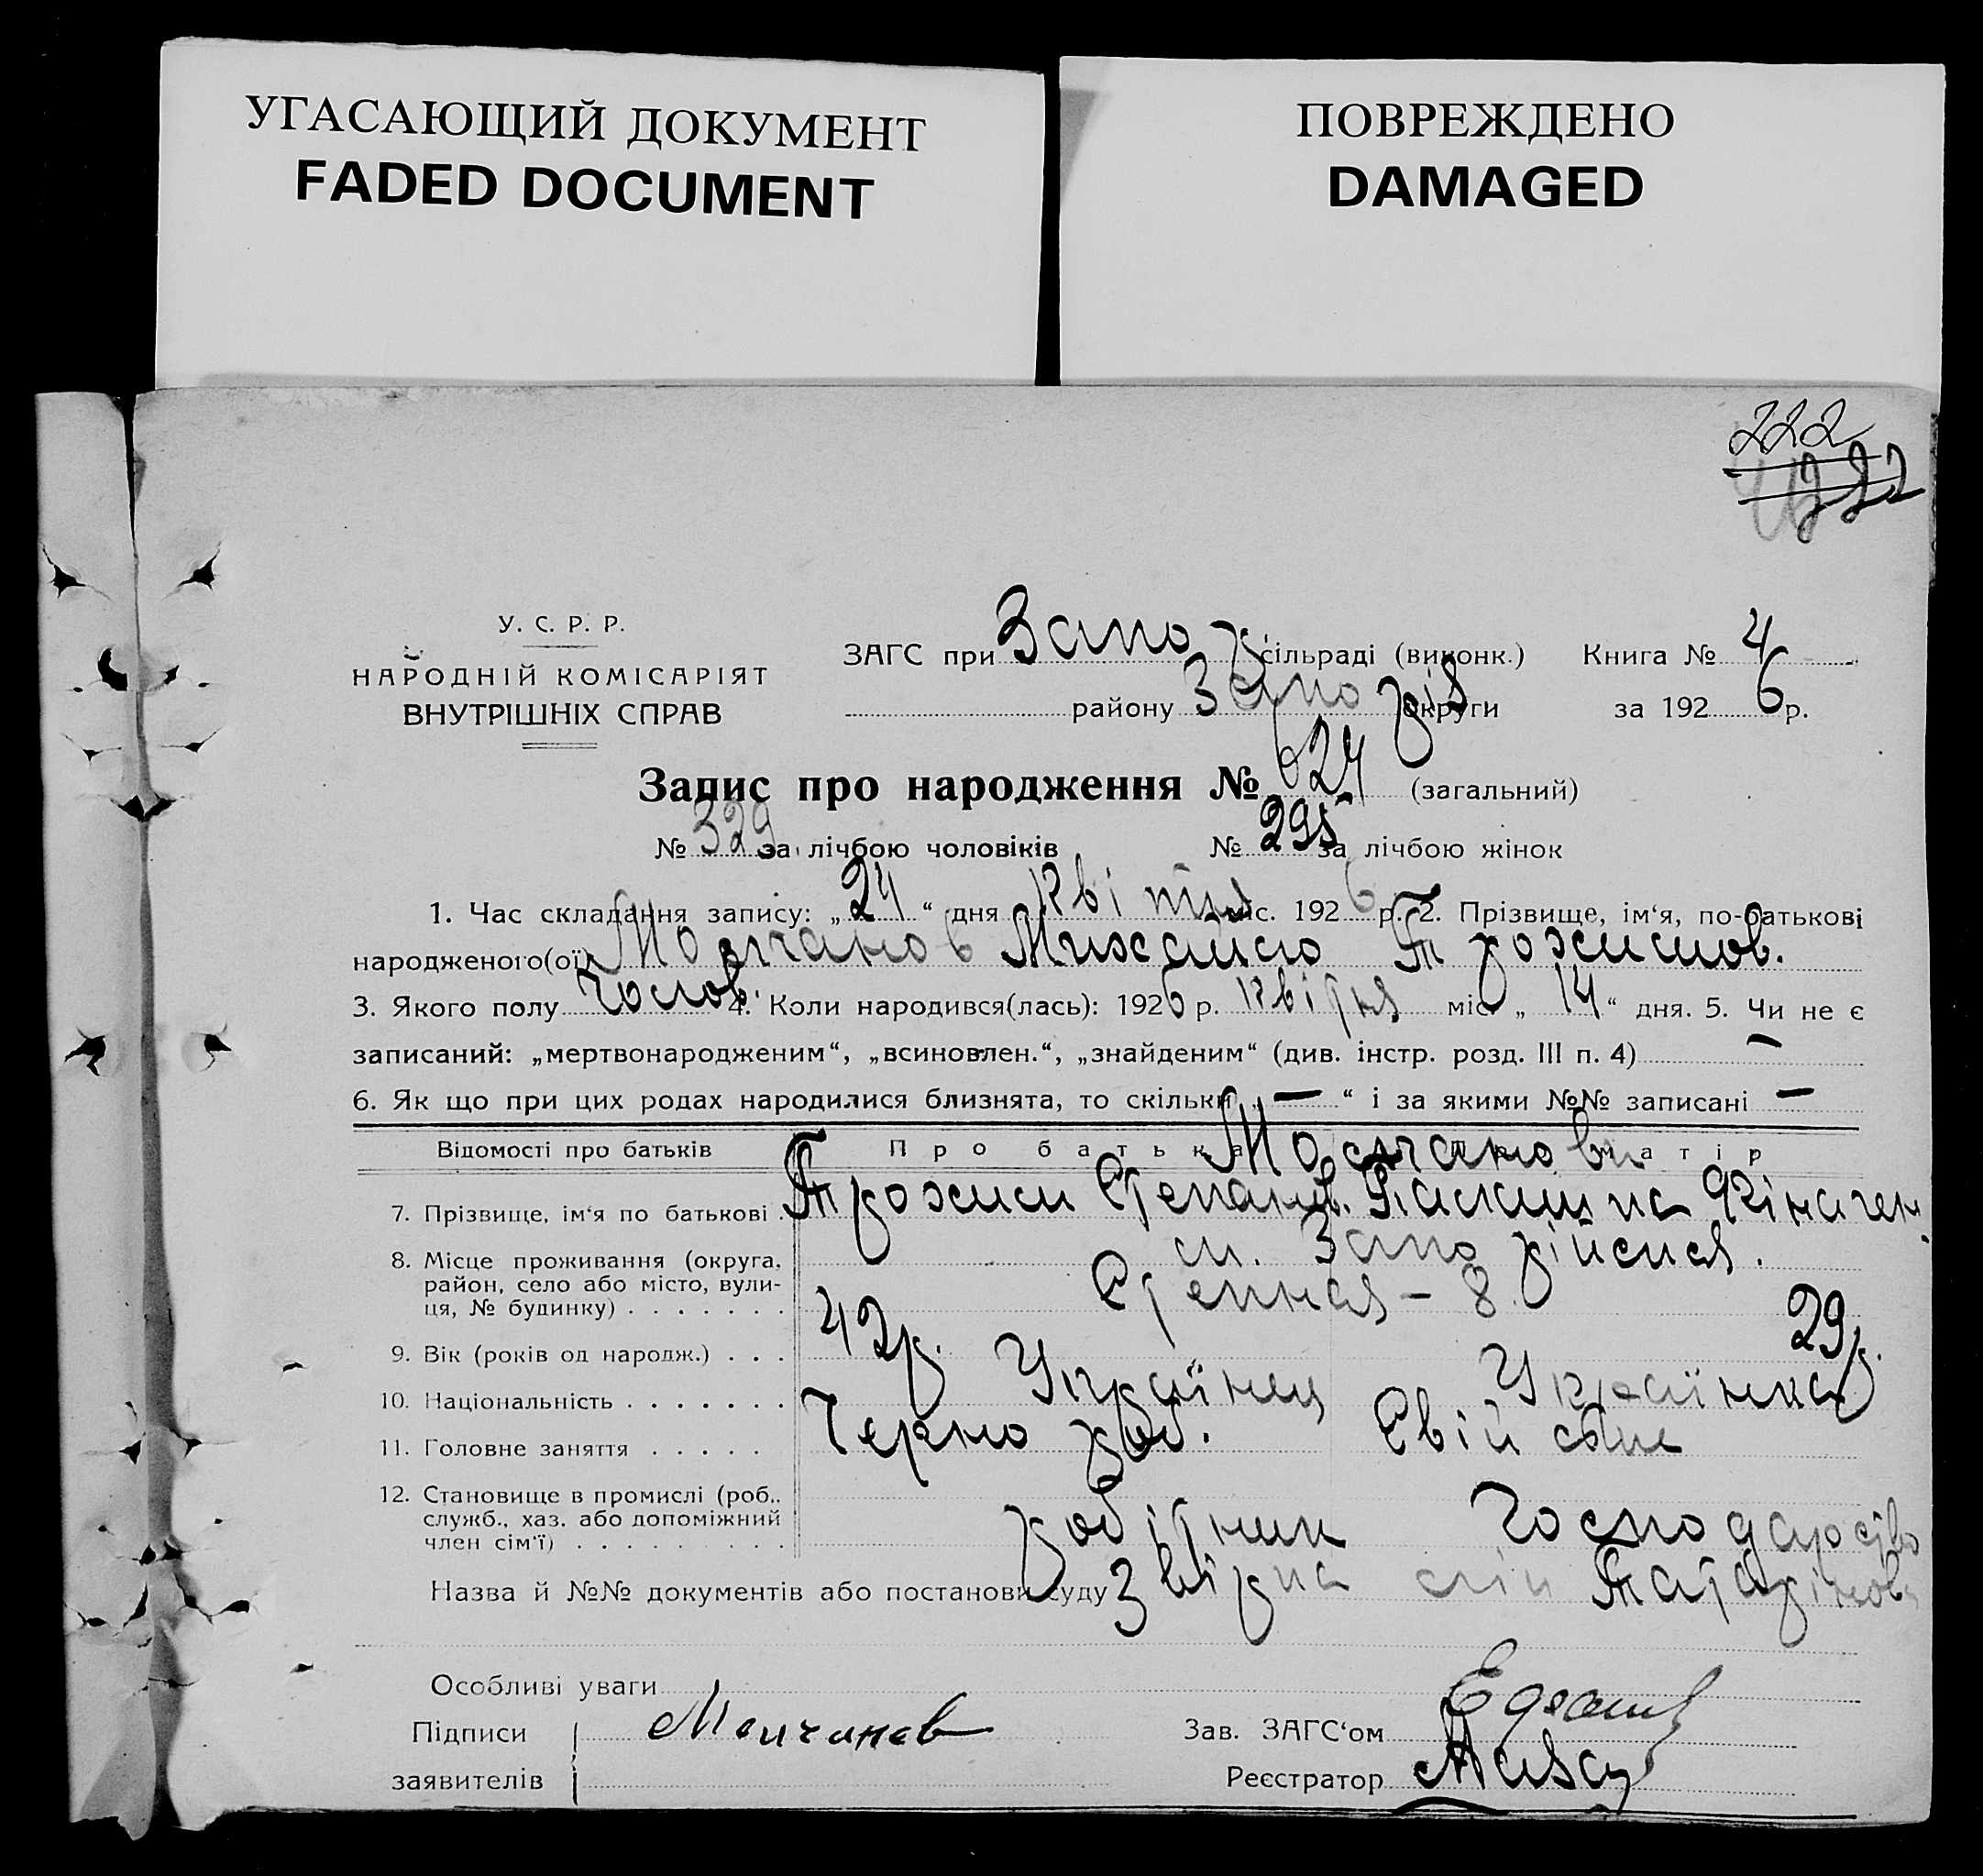 УГАСАЮЩИЙ ДОКУМЕНТ
FADED DOCUMENT
ПОВРЕЖДЕНО
DAMAGED
222
222
У. С. Р. Р.
НАРОДНІЙ КОМІСАРІЯТ
ВНУТРІШНІХ СПРАВ
ЗАГС при Запор сільраді (виконк.) Книга № 4
району Запоріз округи за 1926 р.
Запис про народження № 624 (загальний)
№ 329 за лічбою чоловіків № 295 за лічбою жінок
1. Час складання запису: „24“ дня квітня міс. 1926 р. 2. Прізвище, ім‘я, по-батькові
народженого(ої) Молчанов Михайло Трохимов.
3. Якого полу чолов. 4. Коли народився(лась): 1926 р. квітня міс. „14“ дня. 5. Чи не є
записаний: „мертвонародженим“, „всиновлен.“, „знайденим“ (див. інстр. розд. III п. 4) —
6. Як що при цих родах народилися близнята, то скільки „—“ і за якими №№ записані —
Відомості про батьків Про батька Про матір
Молчанови
7. Прізвище, ім‘я по батькові . Трохим Степанов.
8. Місце проживання (округа, район, село або місто, вулиця, № будинку) . . . . . . . м.
Степная – 8.
9. Вік (років од народж.) . . . 42р. 29р.
10. Національність . . . . . . . Українец Українка
11. Головне заняття . . . . . Чернороб. Свій
12. Становище в промислі (роб., служб., хаз. або допоміжний член сім‘ї) . . . . . . . . . робітник господарство
Назва й №№ документів або постанови суду
Особливі уваги
Підписи заявителів Молчанов
Зав. ЗАГС‘ом
Реєстратор